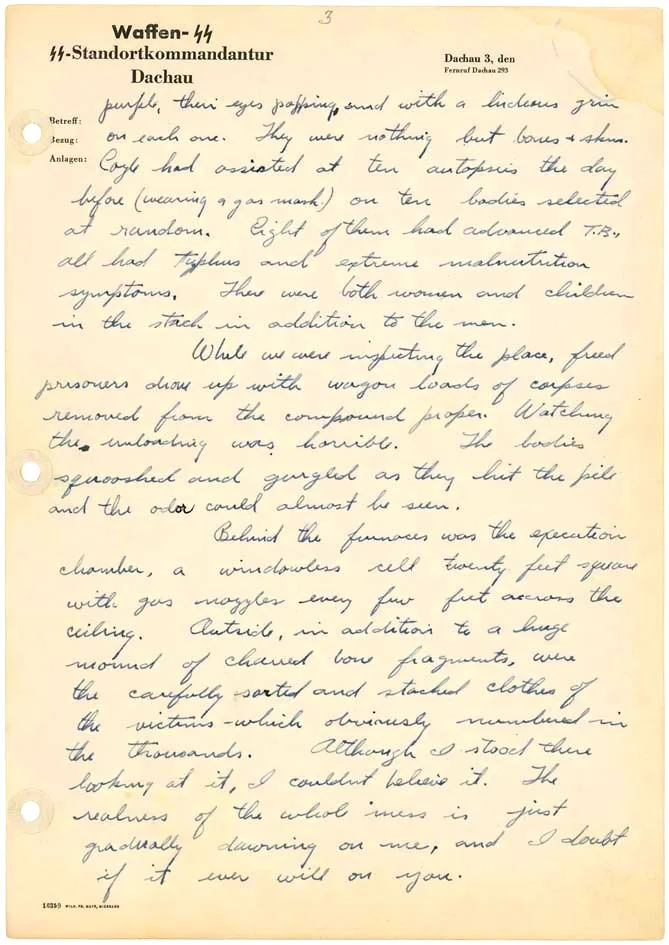 3
Waffen-SS
SS-Standortkommandantur
Dachau
Dachau 3, den
Fernruf Dachau 293
Betreff:
Bezug:
Anlagen:
purple, their eyes popping, and with a hideous grin
on each one. They were nothing but bones & skin.
Coyle had assisted at ten autopsies the day
before (wearing a gas mask) on ten bodies selected
at random. Eight of them had advanced T.B.,
all had Typhus and extreme malnutrition
symptoms. There were both women and children
in the stack in addition to the men.
While we were inspecting the place, freed
prisoners drove up with wagon loads of corpses
removed from the compound proper. Watching
the unloading was horrible. The bodies
squooshed and gurgled as they hit the pile
and the odor could almost be seen.
Behind the furnaces was the execution
chamber, a windowless cell twenty feet square
with gas nozzles every few feet across the
ceiling. Outside, in addition to a huge
mound of charred bone fragments, were
the carefully sorted and stacked clothes of
the victims - which obviously numbered in
the thousands. Although I stood there
looking at it, I couldn't believe it. The
realness of the whole mess is just
gradually dawning on me, and I doubt
if it ever will on you.